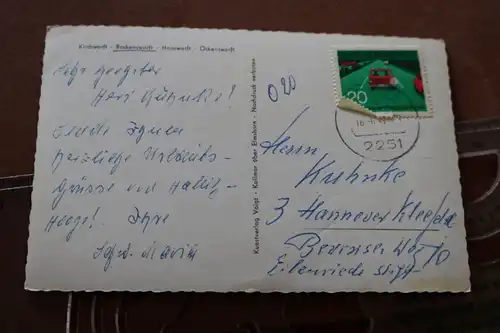 Kirchwarft - Backenswarft - Hanswarft - Ockenswarft
Sehr geehrter
Herr Kuhnke!
Sende Ihnen
herzliche Urlaubs-
Grüsse von Hallig-
Hooge! Ihre
Schw. Maria
Kunstverlag Voigt - Kollmar über Elmshorn - Nachdruck verboten
020
20
2251
Herrn
Kuhnke
3 Hannover Kleefeld